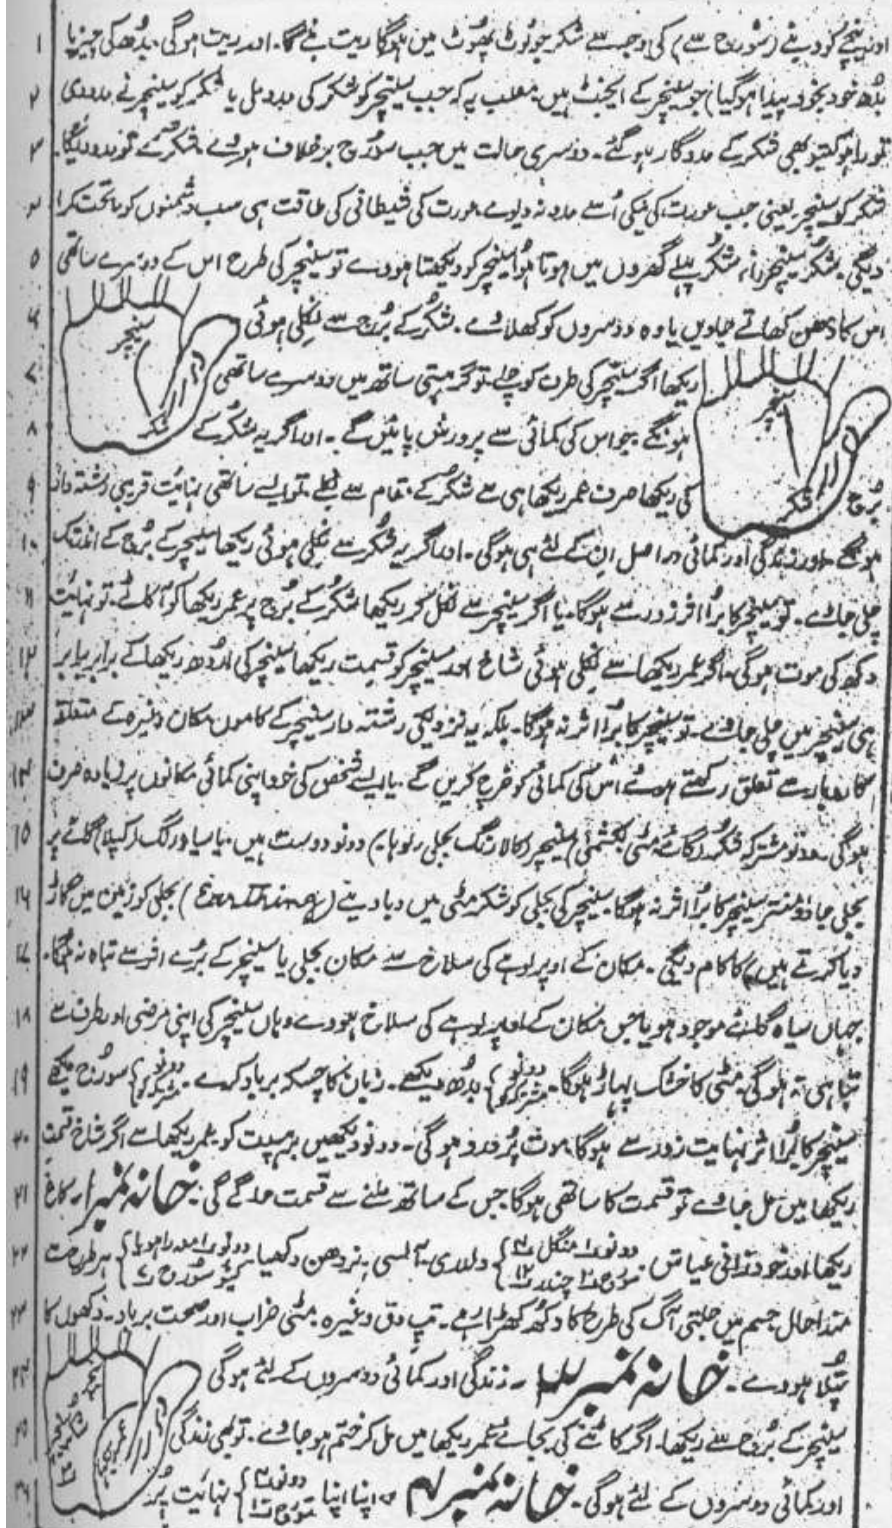 اور نیچے کو دبنے (سورج سے) کی وجہ سے شکر جو ٹوٹ پھوٹ میں ہوگا ریت بنے گا۔ اور ریت ہوگی۔ بدھ کی چیز یا ۱
بدھ خود بخود پیدا ہوگیا) جو سنیچر کے ایجنٹ ہیں۔ مطلب یہ کہ جب سنیچر کو شکر کی مدد ملی یا شکر کو سنیچر نے مدد دی ۲
تو راہو کیتو بھی شکر کے مددگار ہوگئے۔ دوسری حالت میں جب سورج برخلاف ہووے شکر کے تو مدد دیگا۔ ۳
شکر کو سنیچر یعنی جب عورت کی نیکی اُسے مدد نہ دیوے۔ عورت کی شیطانی کی طاقت ہی سب دشمنوں کو ماتحت کرا ۴
دیگی۔ شکر سنیچر شکر پہلے گھروں میں ہوتا ہوا سنیچر کو دیکھتا ہووے تو سنیچر کی طرح اس کے دوسرے ساتھی ۵
اس کا دھن کھاتے جاویں یا وہ دوسروں کو کھلاوے۔ شکر کے بُرج سے نکلی ہوئی ۶
سنیچر
شکر
ریکھا اگر سنیچر کی طرف کو چلے تو گرہستی ساتھ میں دوسرے ساتھی ۷
ہونگے۔ جو اس کی کمائی سے پرورش پائیں گے۔ اور اگر یہ شکر کے ۸
سنیچر
شکر
بُرج کی ریکھا صرف عمر ریکھا ہی سے شکر کے مقام سے نکلے تو ایسے ساتھی نہایت قریبی رشتہ دار ۹
ہونگے۔ اور زندگی اور کمائی دراصل ان کے لئے ہی ہوگی۔ اور اگر یہ شکر سے نکلی ہوئی ریکھا سنیچر کے بُرج کے اندر تک ۱۰
چلی جاوے۔ تو سنیچر کا بُرا اثر زور سے ہوگا۔ یا اگر سنیچر سے نکل کر ریکھا شکر کے بُرج پر عمر ریکھا کو آ کاٹے۔ تو نہایت ۱۱
دکھ کی موت ہوگی۔ اگر عمر ریکھا سے نکلی ہوئی شاخ اور سنیچر کو قسمت ریکھا سنیچر کی اُردھ ریکھا کے برابر برابر ۱۲
ہی سنیچر میں چلی جاوے۔ تو سنیچر کا بُرا اثر نہ ہوگا۔ بلکہ یہ نزدیکی رشتہ دار سنیچر کے کاموں مکان وغیرہ کے متعلقہ ۱۳
کاروبار سے تعلق رکھتے ہوئے اُس کی کمائی کو خرچ کریں گے۔ یا ایسے شخص کی خود اپنی کمائی مکانوں پر زیادہ صرف ۱۴
ہوگی۔ دونو مشترکہ شکر (گائے مٹی لکشمی) سنیچر (کالا رنگ بجلی لوہا) دونو دوست ہیں۔ یا سیاہ رنگ (کپلا) گائے پر ۱۵
بجلی جادو منتر سنیچر کا بُرا اثر نہ ہوگا۔ سنیچر کی بجلی کو شکر مٹی میں دبا دینے (Earthing) (بجلی کو زمین میں گاڑ ۱۶
دیا کرتے ہیں) کا کام دیگی۔ مکان کے اوپر لوہے کی سلاخ سے مکان بجلی یا سنیچر کے بُرے اثر سے تباہ نہ ہوگا۔ ۱۷
جہاں سیاہ گائے موجود ہو یا جس مکان کے اوپر لوہے کی سلاخ ہووے وہاں سنیچر کی اپنی مرضی اور طرف سے ۱۸
تباہی نہ ہوگی۔ مٹی کا خشک پہاڑ ہوگا۔ دونو مشترکہ کو } بدھ دیکھے۔ زبان کا چسکہ برباد کرے۔ دونو مشترکہ کو } سورج دیکھے ۱۹
سنیچر کا بُرا اثر نہایت زور سے ہوگا۔ موت پُردرد ہوگی۔ دونو دیکھیں برہسپت کو۔ عمر ریکھا سے اگر شاخ قسمت ۲۰
ریکھا میں مل جاوے تو قسمت کا ساتھی ہوگا۔ جس کے ساتھ ملنے سے قسمت جاگے گی۔ خانہ نمبر ۱۔ کاغ ۲۱
ریکھا اور خود ذاتی عیاش۔ } ولادی۔ آلسی۔ نردھن دکھیا } ہر طرح سے ۲۲
مندا حال جسم میں جلتی آگ کی طرح کا دکھ کھڑا رہے۔ تپ دق وغیرہ۔ مٹی خراب اور صحت برباد۔ دکھوں کا ۲۳
پتلا ہووے۔ خانہ نمبر ۔ زندگی اور کمائی دوسروں کے لئے ہوگی ۲۴
سنیچر کے بُرج سے ریکھا۔ اگر کاٹنے کی بجائے عمر ریکھا میں مل کر ختم ہو جاوے۔ تو بھی زندگی ۲۵
اور کمائی دوسروں کے لئے ہوگی۔ خانہ نمبر ۴ اپنا اپنا } نہایت پُر ۲۶